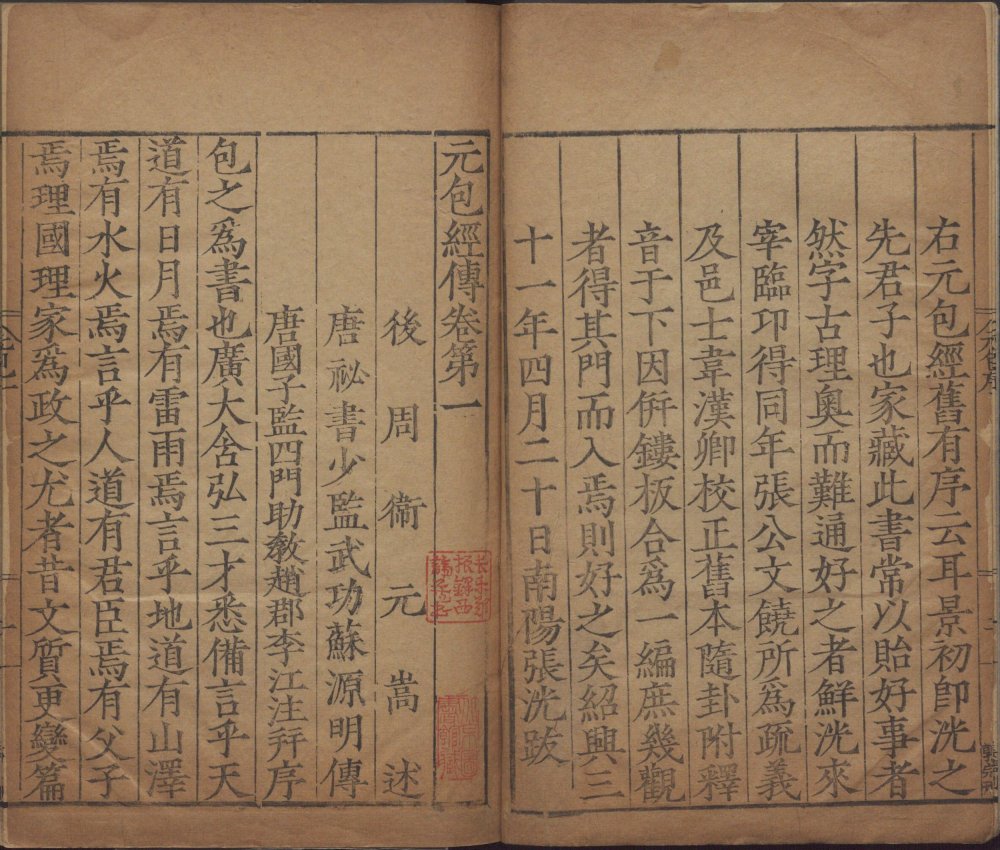 右元包經舊有序云耳景初卽洸之
先君子也家藏此書常以貽好事者
然字古理奧而難通好之者鮮洸來
宰臨邛得同年張公文饒所爲疏義
及邑士韋漢卿校正舊本隨卦附釋
音于下因倂鏤板合爲一編庶幾觀
者得其門而入焉則好之矣紹興三
十一年四月二十日南陽張洸跋
元包經傳卷第一
後周衞元嵩述
唐祕書少監武功蘇源明傳
唐國子監四門助敎趙郡李江注幷序
包之爲書也廣大含弘三才悉備言乎天
道有日月焉有雷雨焉言乎地道有山澤
焉有水火焉言乎人道有君臣焉有父子
焉理國理家爲政之尤者昔文質更變篇